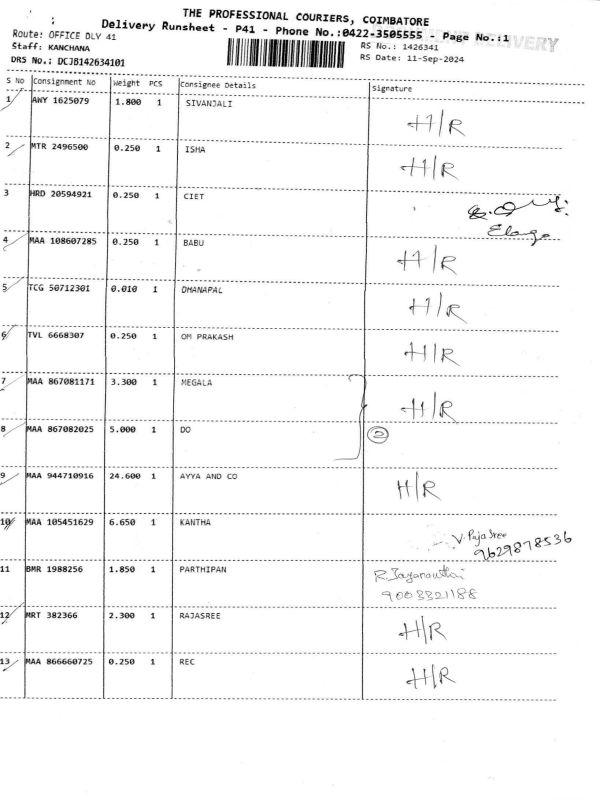 THE PROFESSIONAL COURIERS, COIMBATORE
Delivery Runsheet - P41 - Phone No.:0422-3505555 Page No.:1
DELIVERY
Route: OFFICE DLY 41
RS No.: 1426341
Staff: KANCHANA
RS Date: 11-Sep-2024
DRS No.: DCJB142634101
S No Consignment No Weight PCS Consignee Details Signature
1 AWY 1625079 1.800 1 SIVANJALI H/R
2 MTR 2496500 0.250 1 ISHA H/R
3 HRD 20594921 0.250 1 CIET
Elango
4 MAA 108607285 0.250 1 BABU H/R
5 TCG 50712301 0.010 1 DHANAPAL H/R
6 TVL 6668307 0.250 1 OM PRAKASH H/R
7 MAA 867081171 3.300 1 MEGALA H/R
8 MAA 867082025 5.000 1 DO 2
9 MAA 944710916 24.600 1 AYYA AND CO H/R
10 MAA 105451629 6.650 1 KANTHA V. Raja Sree
9629878536
11 BMR 1988256 1.850 1 PARTHIPAN R. Jayananthi
9003321188
12 MRT 382366 2.300 1 RAJASREE H/R
13 MAA 866660725 0.250 1 REC H/R